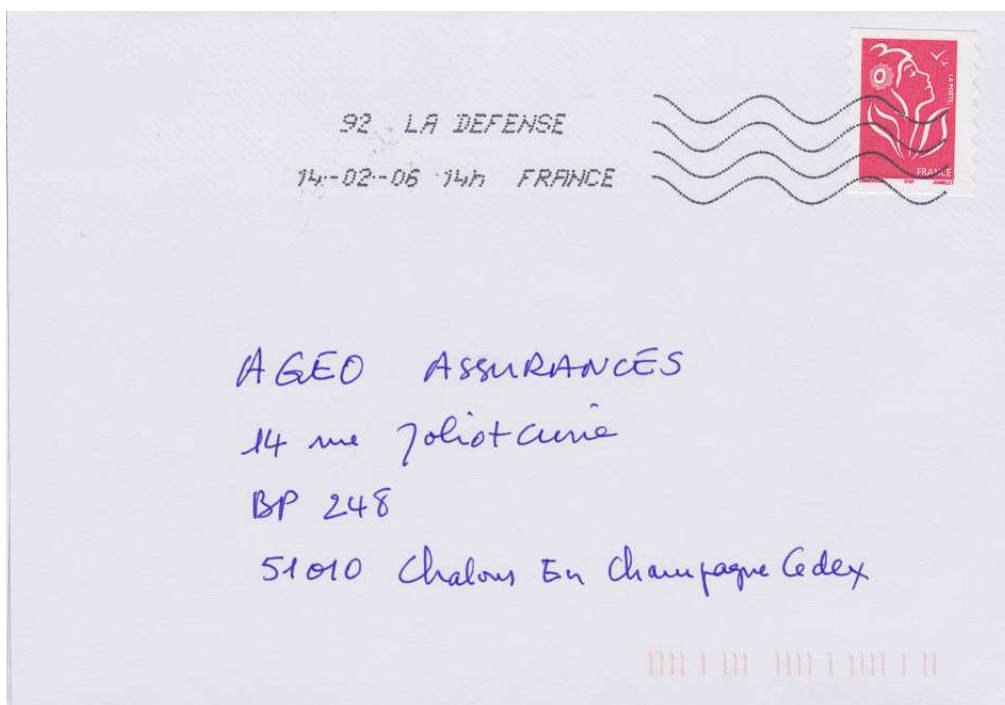 92 LA DEFENSE
14-02-06 14h FRANCE
LA POSTE
FRANCE
AGEO ASSURANCES
14 rue Joliot Curie
BP 248
51010 Chalons En Champagne Cedex